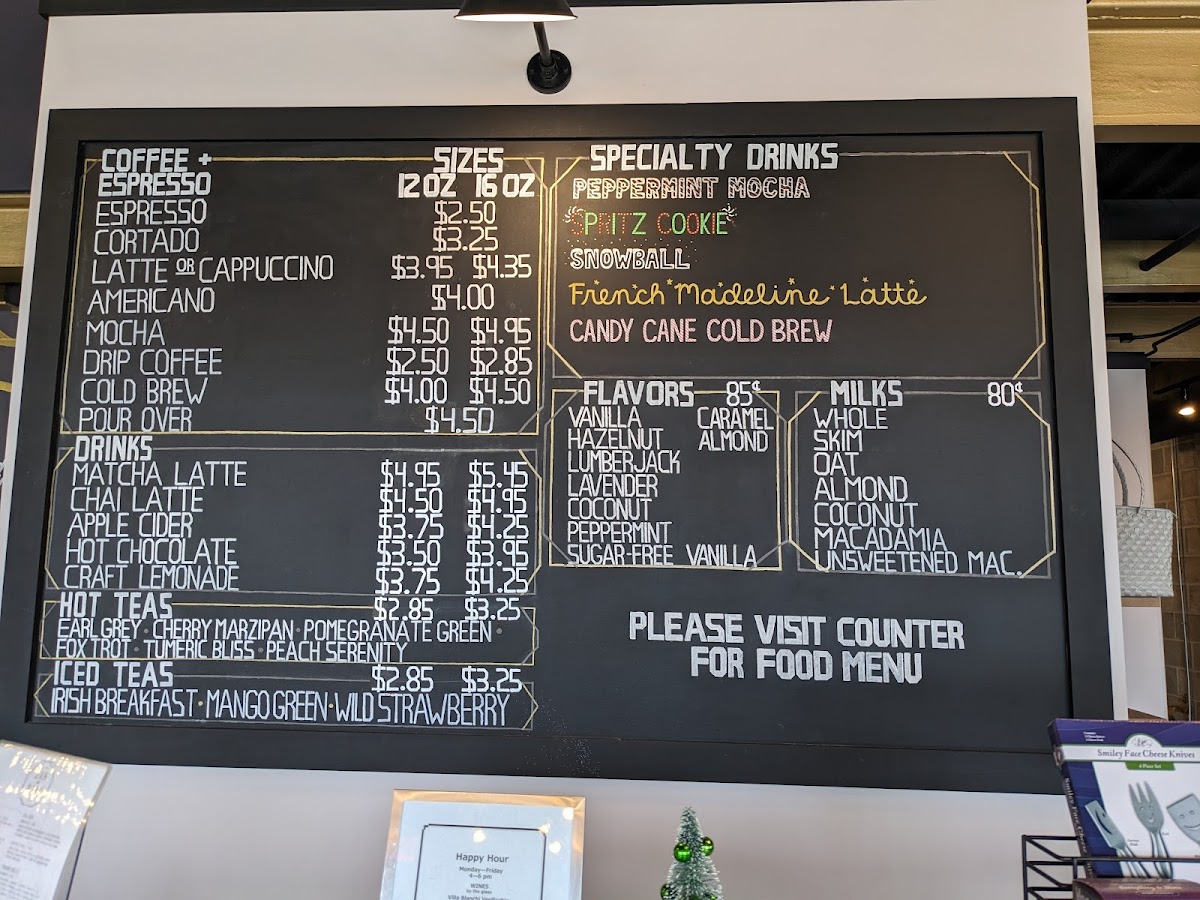 COFFEE + SIZES
ESPRESSO 12 OZ 16 OZ
ESPRESSO $2.50
CORTADO $3.25
LATTE OR CAPPUCCINO $3.95 $4.35
AMERICANO $4.00
MOCHA $4.50 $4.95
DRIP COFFEE $2.50 $2.85
COLD BREW $4.00 $4.50
POUR OVER $4.50
DRINKS
MATCHA LATTE $4.95 $5.45
CHAI LATTE $4.50 $4.95
APPLE CIDER $3.75 $4.25
HOT CHOCOLATE $3.50 $3.95
CRAFT LEMONADE $3.75 $4.25
HOT TEAS $2.85 $3.25
EARL GREY • CHERRY MARZIPAN • POMEGRANATE GREEN •
FOX TROT • TUMERIC BLISS • PEACH SERENITY
ICED TEAS $2.85 $3.25
IRISH BREAKFAST • MANGO GREEN • WILD STRAWBERRY
SPECIALTY DRINKS
PEPPERMINT MOCHA
SPRITZ COOKIE
SNOWBALL
French Madeline Latte
CANDY CANE COLD BREW
FLAVORS 85¢
VANILLA CARAMEL
HAZELNUT ALMOND
LUMBERJACK
LAVENDER
COCONUT
PEPPERMINT
SUGAR-FREE VANILLA
MILKS 80¢
WHOLE
SKIM
OAT
ALMOND
COCONUT
MACADAMIA
UNSWEETENED MAC.
PLEASE VISIT COUNTER
FOR FOOD MENU
Happy Hour
Monday—Friday
4—6 pm
WINES
by the glass
Smiley Face Cheese Knives
4 Piece Set